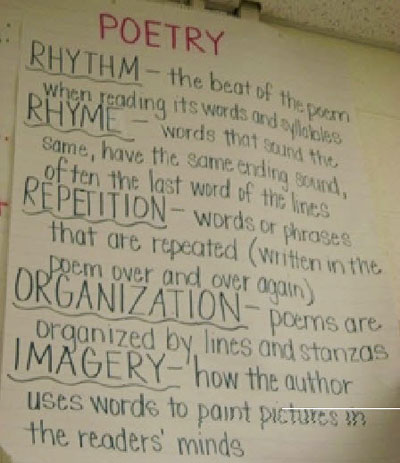 POETRY
RHYTHM - the beat of the poem
when reading its words and syllables
RHYME - words that sound the
same, have the same ending sound,
often the last word of the lines
REPETITION - words or phrases
that are repeated (written in the
poem over and over again)
ORGANIZATION - poems are
organized by lines and stanzas
IMAGERY - how the author
uses words to paint pictures in
the readers' minds